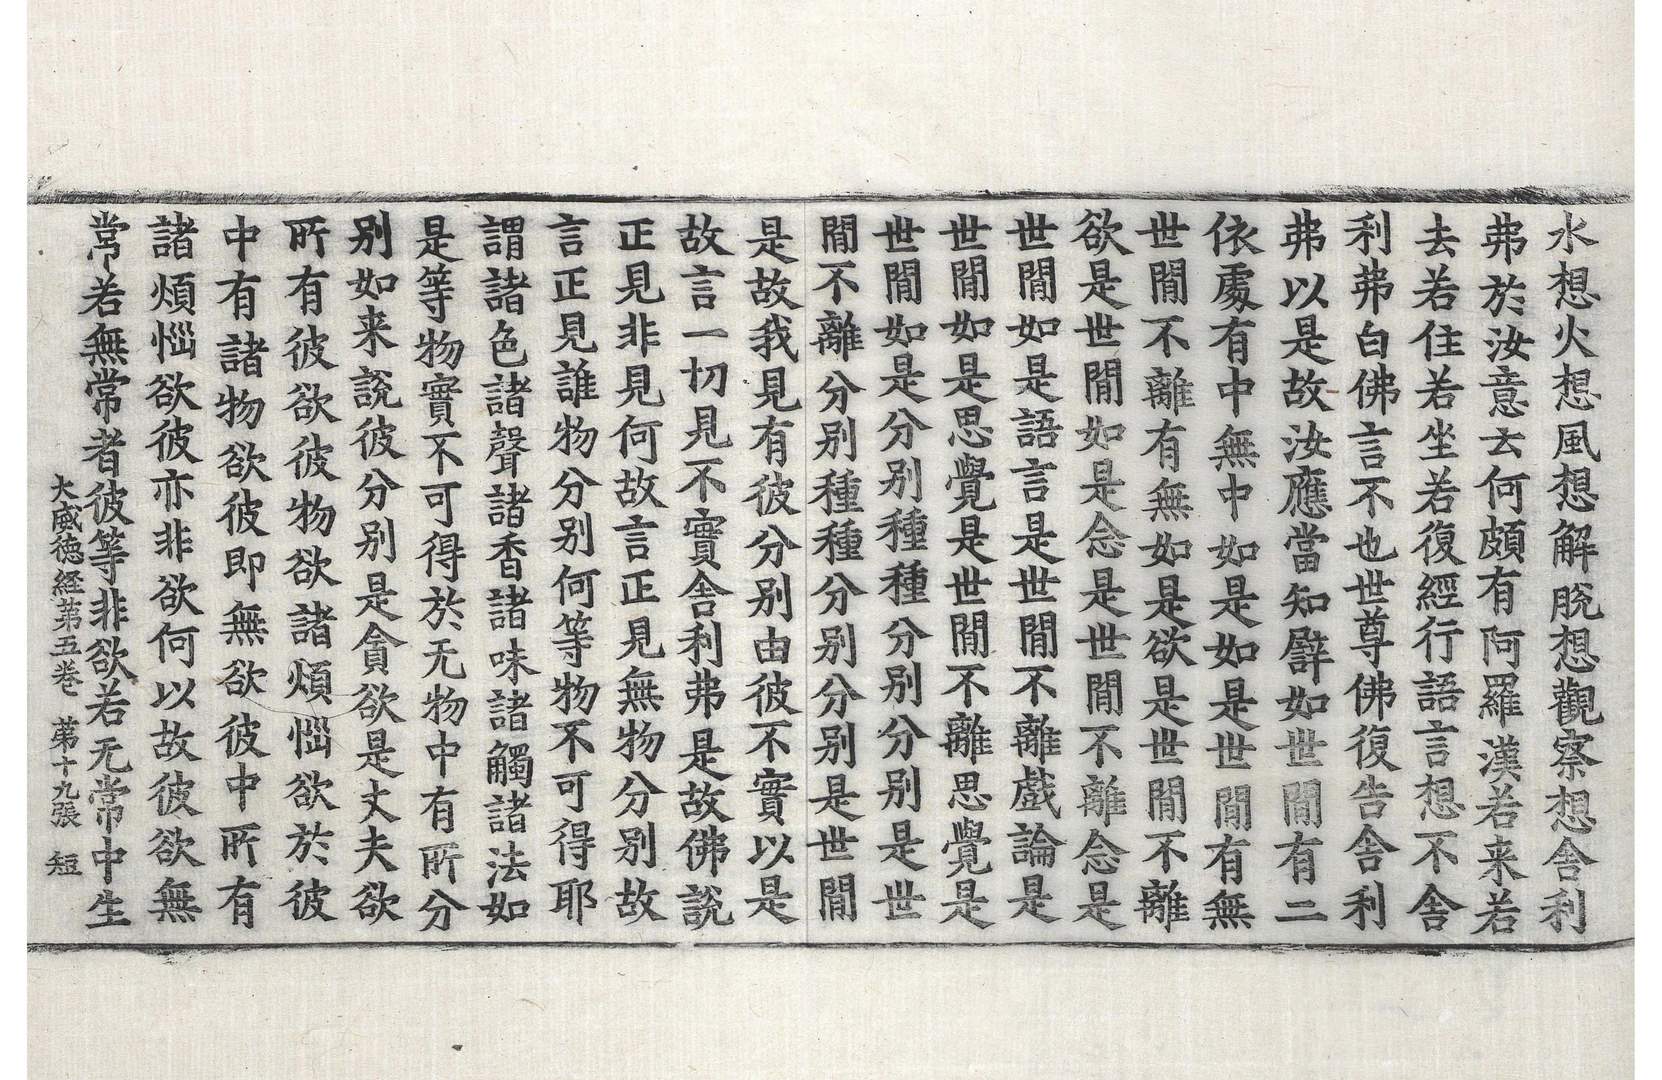 水想火想風想解脫想觀察想舍利
弗於汝意云何頗有阿羅漢若来若
去若住若坐若復經行語言想不舍
利弗白佛言不也世尊佛復告舍利
弗以是故汝應當知譬如世間有二
依處有中無中如是如是世間有無
世間不離有無如是欲是世間不離
欲是世間如是念是世間不離念是
世間如是語言是世間不離戲論是
世間如是思覺是世間不離思覺是
世間如是分别種種分别分别是世
間不離分别種種分别分别是世間
是故我見有彼分别由彼不實以是
故言一切見不實舍利弗是故佛說
正見非見何故言正見無物分别故
言正見誰物分别何等物不可得耶
謂諸色諸聲諸香諸味諸觸諸法如
是等物實不可得於无物中有所分
别如来說彼分别是貪欲是丈夫欲
所有彼欲彼物欲諸煩惱欲於彼
中有諸物欲彼即無欲彼中所有
諸煩惱欲彼亦非欲何以故彼欲無
常若無常者彼等非欲若无常中生
大威徳経第五卷 第十九張 短